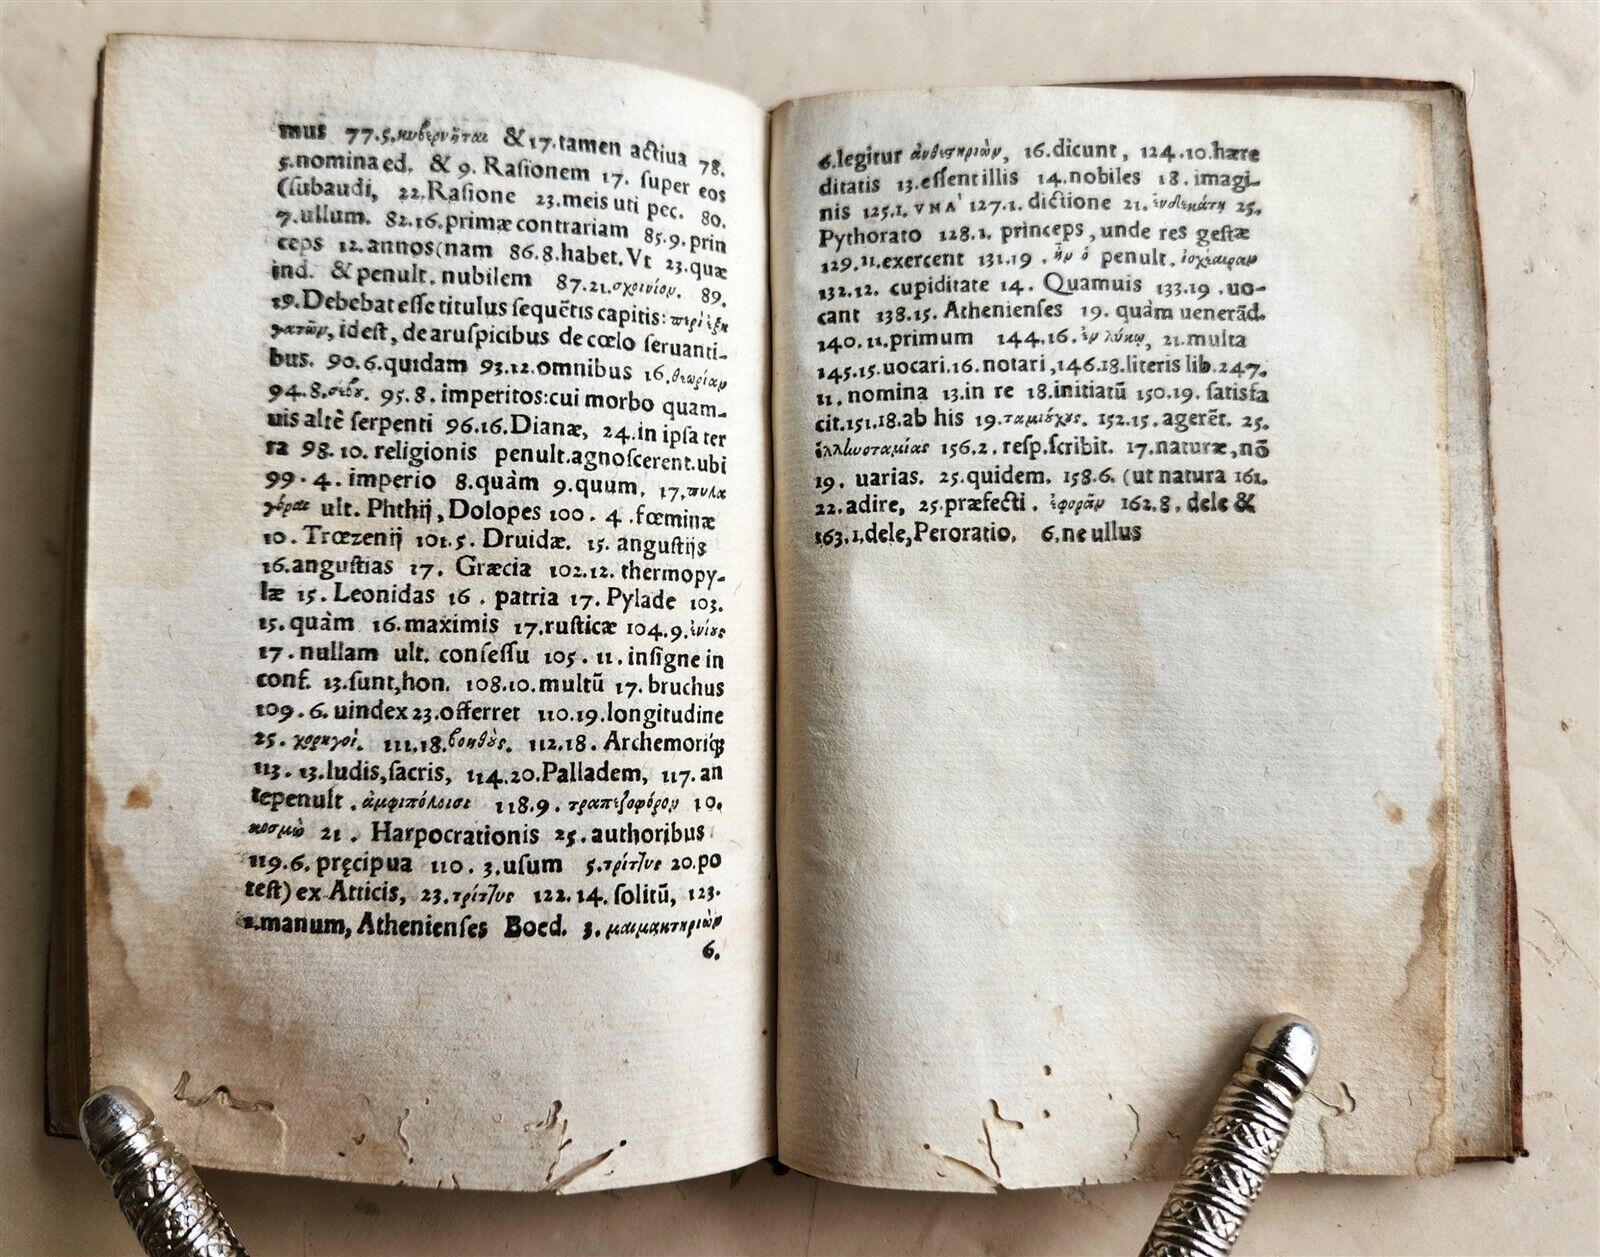 mus 77.5.κυβερνῆται & 17.tamen actiua 78.
5.nomina ed. & 9. Rasionem 17. ſuper eos
(ſubaudi, 22.Raſione 23.meis uti pec. 80.
7.ullum. 82.16.primæ contrariam 85.9.prin
ceps 12.annos(nam 86.8.habet.Vt 23.quæ
ind. & penult.nubilem 87.21.σχοινίου. 89.
19.Debebat eſſe titulus ſequẽtis capitis:
idest, de aruſpicibus de cœlo ſeruanti-
bus. 90.6.quidam 93.12.omnibus 16.θεωρίαν
94.8. 95.8.imperitos:cui morbo quam-
uis altè ſerpenti 96.16.Dianæ, 24.in ipſa ter
ra 98.10. religionis penult.agnoſcerent.ubi
99.4. imperio 8.quàm 9.quum, 17.πυλα
γόραι ult. Phthij, Dolopes 100. 4.fœminæ
10. Trœzenij 101.5. Druidæ. 15. anguſtijs
16.anguſtias 17. Græcia 102.12. thermopy-
læ 15. Leonidas 16. patria 17. Pylade 103.
15.quàm 16.maximis 17.ruſticæ 104.9.ἐνίους
17.nullam ult. conſeſſu 105. 11. inſigne in
conſ. 13.ſunt,hon. 108.10.multũ 17.bruchus
109.6.uindex 23.offerret 110.19.longitudine
25. χορηγοί. 111.18.βοηθοὺς. 112.18. Archemoriq́ꝫ
113.13.ludis,ſacris, 114.20.Palladem, 117.an
tepenult. ἀμφιπόλοισι 118.9. τραπεζοφόρον 10.
κοσμὼ 21. Harpocrationis 25.authoribus
119.6. pręcipua 110. 3.uſum 5.τρίτ]υς 20.po
test) ex Atticis, 23.τρίτ]υς 122.14. ſolitũ, 123.
2.manum, Athenienſes Boed. 3. μαιμακτηριὼν
6.
6.legitur ἀνθεστηριὼν, 16.dicunt, 124.10.hære
ditatis 13.eſſent illis 14.nobiles 18.imagi-
nis 125.1. VNA' 127.1. dictione 21. ἑνδεκάτη 25.
Pythorato 128.1. princeps, unde res geſtæ
129.11.exercent 131.19. ἣν ὁ penult.
132.12. cupiditate 14. Quamuis 133.19.uo-
cant 138.15. Athenienſes 19. quàm uenerãd.
140.11.primum 144.16. ἐν λύκῳ, 21.multa
145.15.uocari.16.notari,146.18.literis lib.247.
11.nomina 13.in re 18.initiatũ 150.19.ſatisfa
cit.151.18.ab his 19.ταμιούχους. 152.15.agerẽt. 25.
ἑλληνοταμίας 156.2. reſp.ſcribit. 17.naturæ,nõ
19. uarias. 25.quidem. 158.6. (ut natura 161.
22.adire, 25.præfecti. ἐφορᾶν 162.8. dele &
163.1.dele,Peroratio. 6.ne ullus